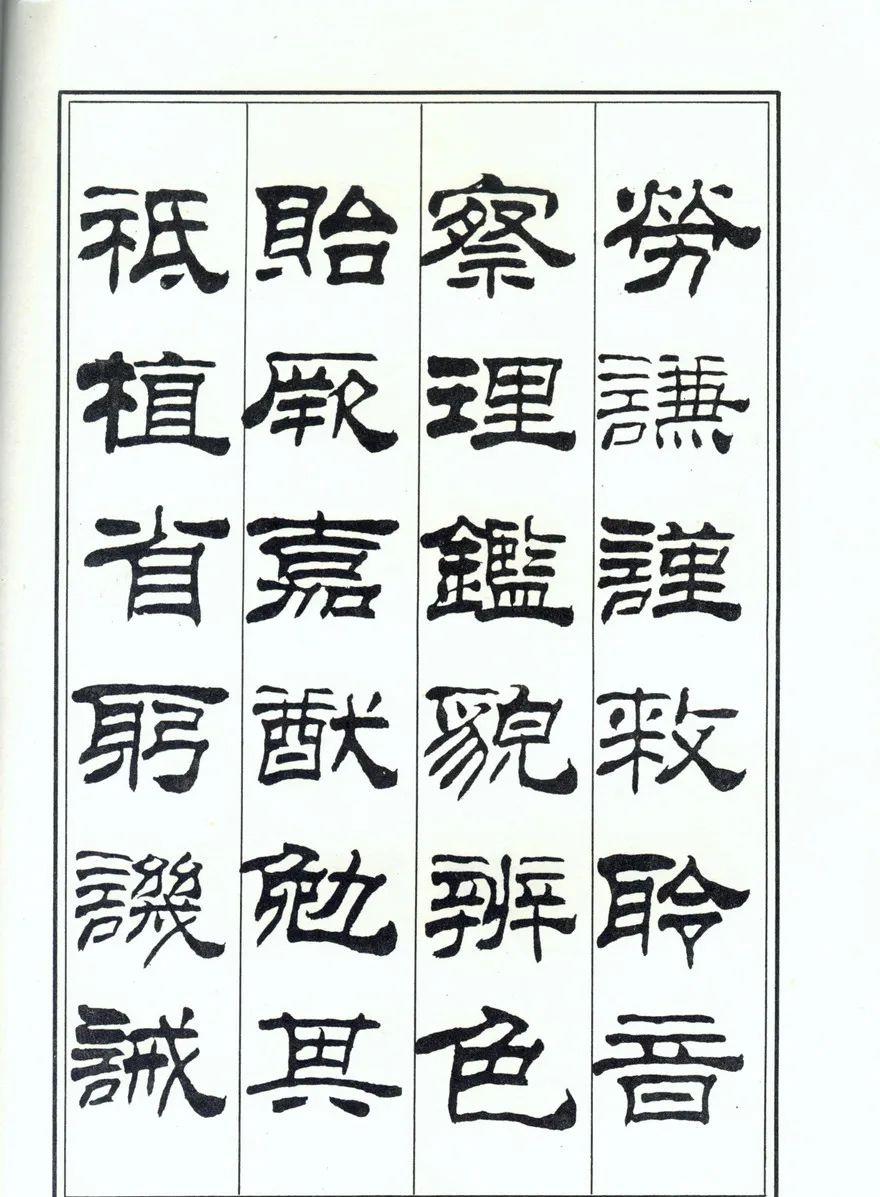 勞謙謹敕聆音
察理鑑貌辨色
貽厥嘉猷勉其
祗植省躬譏誡